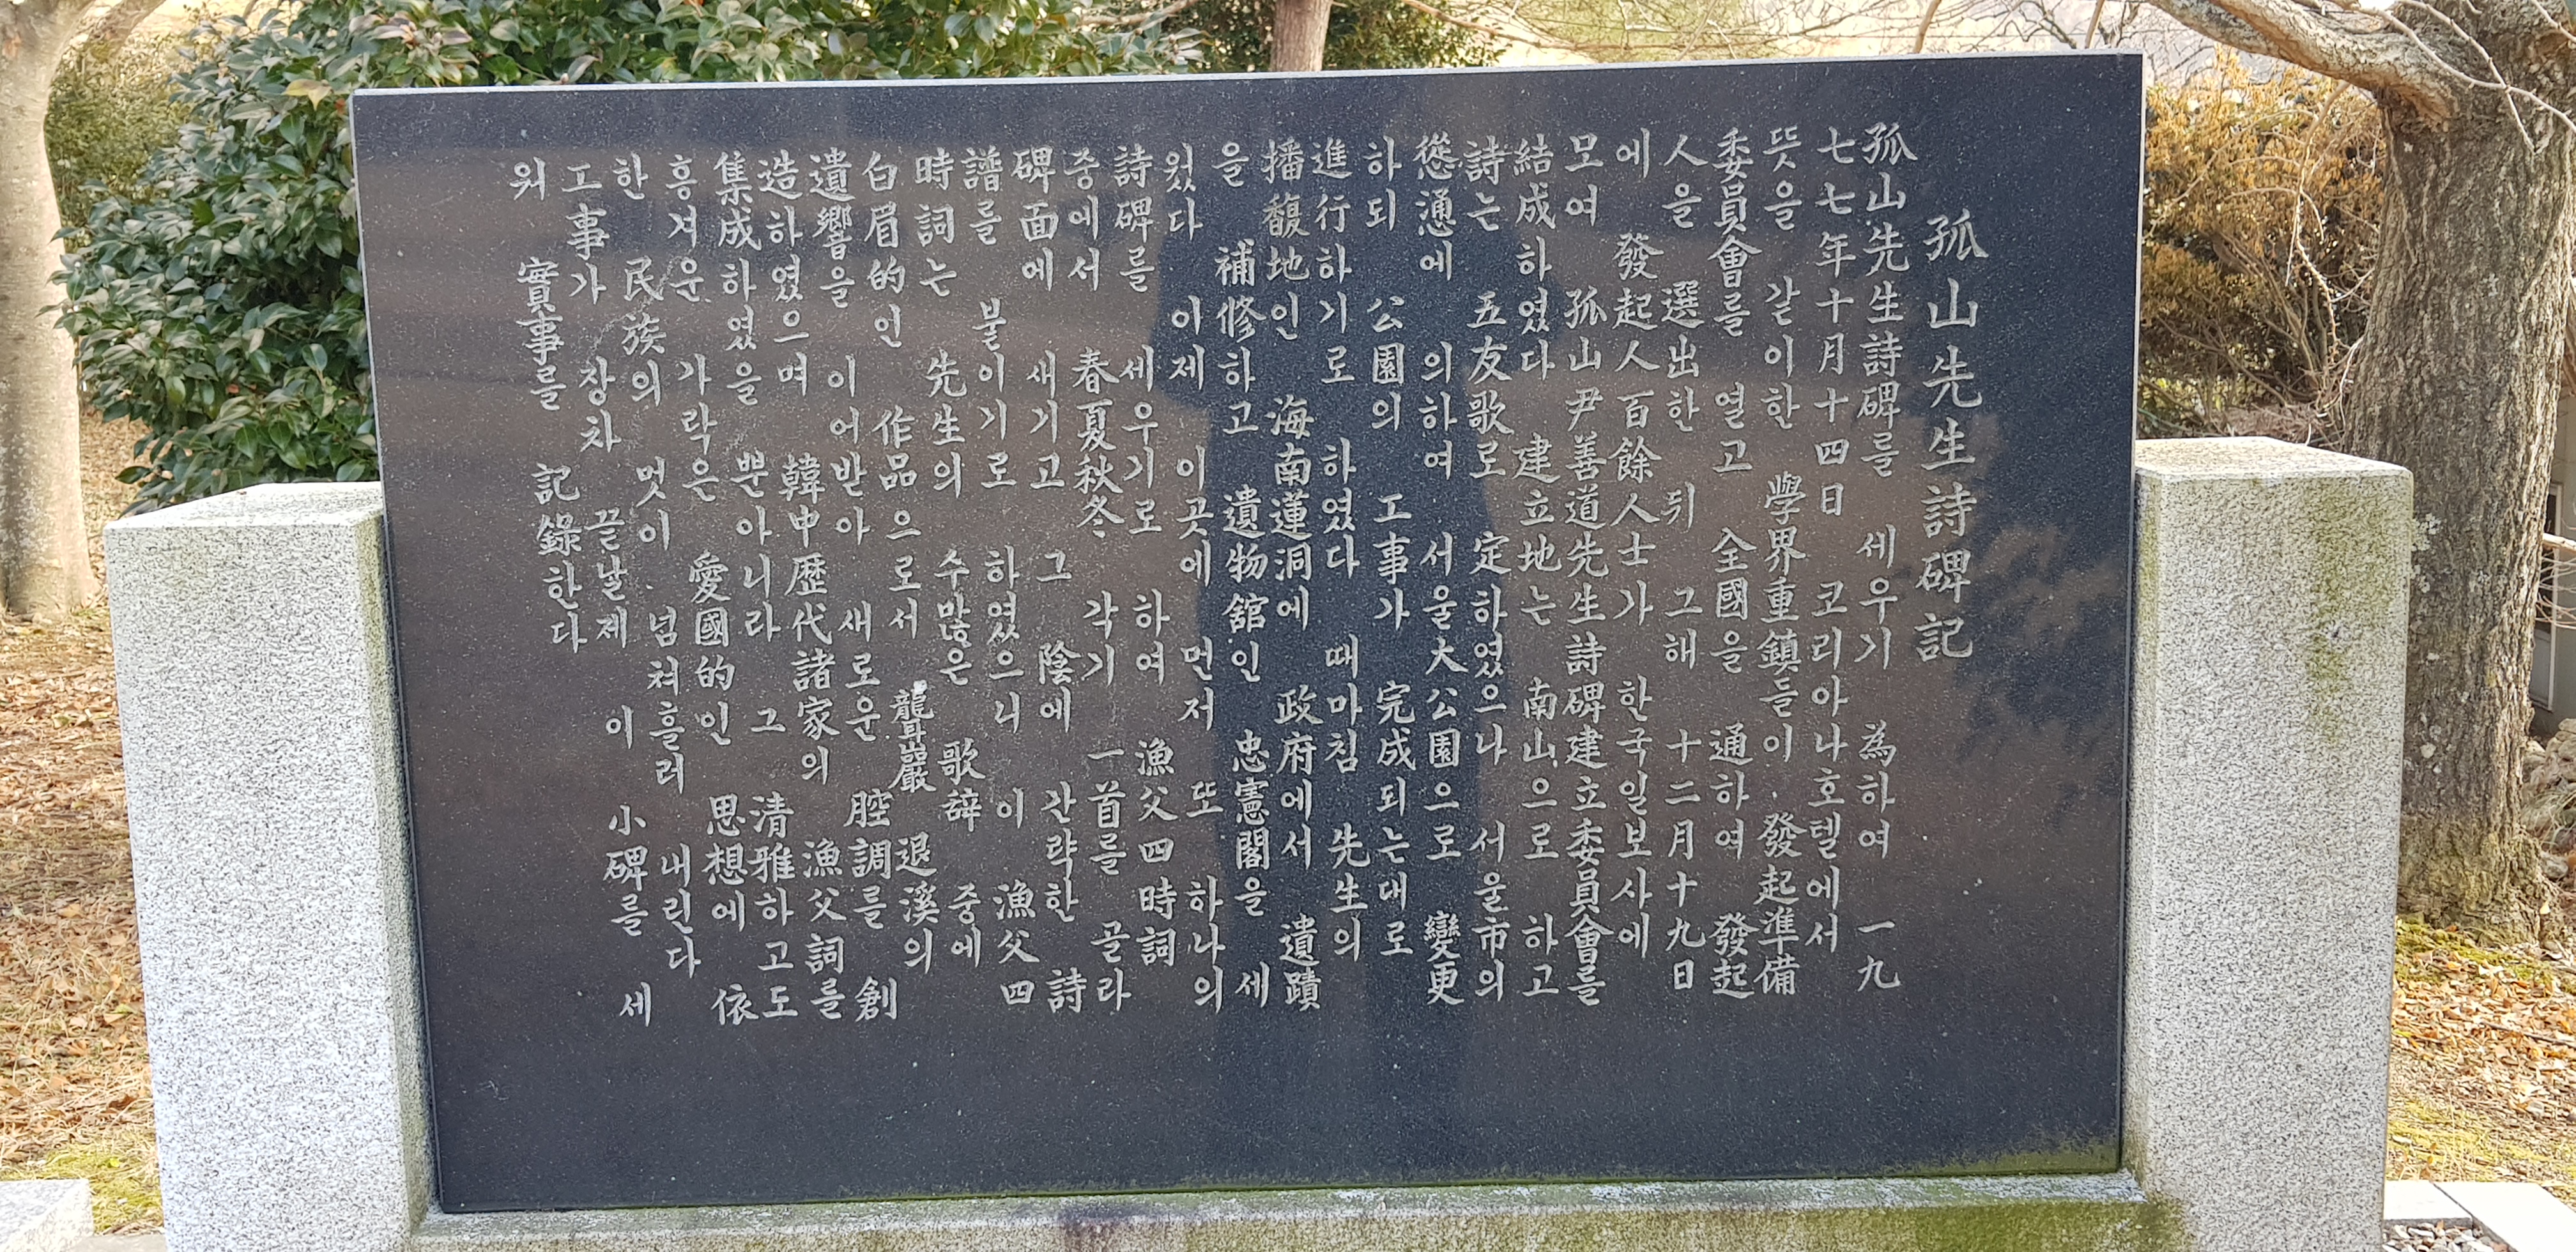 孤山先生詩碑記
孤山先生詩碑를 세우기 為하여 一九
七七年十月十四日 코리아나호텔에서
뜻을 같이한 學界重鎮들이 發起準備
委員會를 열고 全國을 通하여 發起
人을 選出한 뒤 그해 十二月十九日
에 發起人百餘人士가 한국일보사에
모여 孤山尹善道先生詩碑建立委員會를
結成하였다 建立地는 南山으로 하고
詩는 五友歌로 定하였으나 서울市의
慫慂에 의하여 서울大公園으로 變更
하되 公園의 工事가 完成되는대로
進行하기로 하였다 때마침 先生의
播馥地인 海南蓮洞에 政府에서 遺蹟
을 補修하고 遺物舘인 忠憲閣을 세
웠다 이제 이곳에 먼저 또 하나의
詩碑를 세우기로 하여 漁父四時詞
중에서 春夏秋冬 각기 一首를 골라
碑面에 새기고 그 陰에 간략한 詩
譜를 붙이기로 하였으니 이 漁父四
時詞는 先生의 수많은 歌辞 중에
白眉的인 作品으로서 聾巖 退溪의
遺響을 이어받아 새로운 腔調를 創
造하였으며 韓中歷代諸家의 漁父詞를
集成하였을 뿐아니라 그 清雅하고도
흥겨운 가락은 愛國的인 思想에 依
한 民族의 멋이 넘쳐흘러 내린다
工事가 장차 끝날제 이 小碑를 세
워 實事를 記錄한다